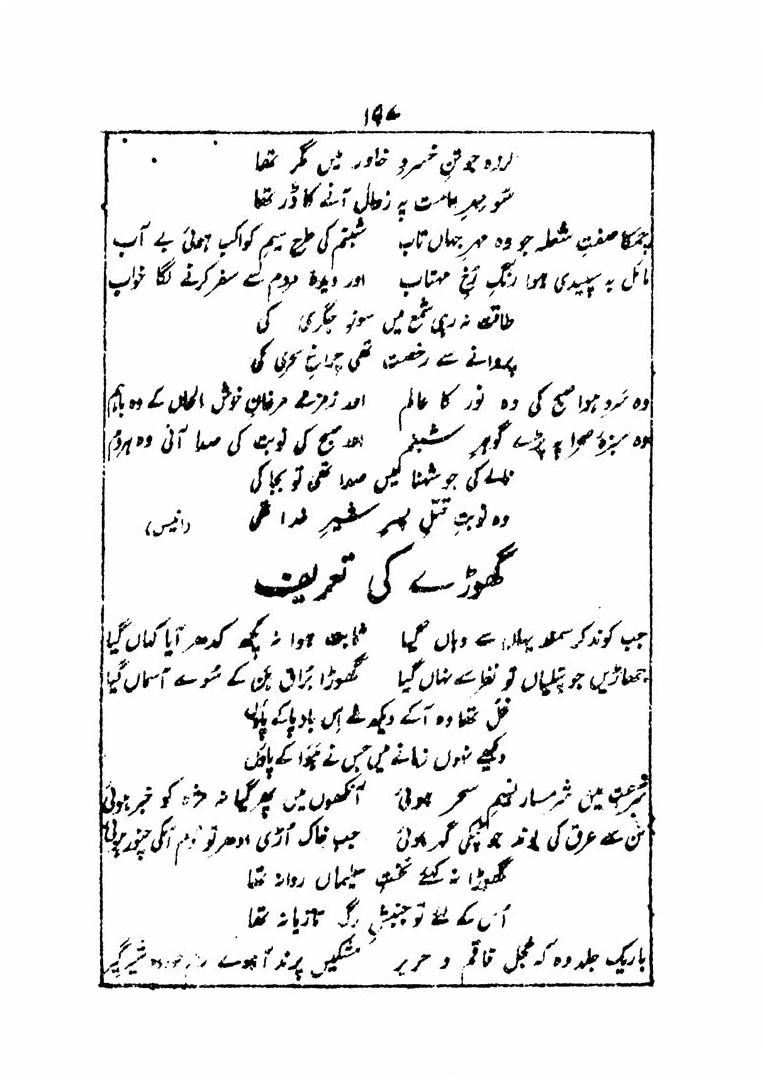 ۱۹۷
وہ جوشنِ خسروِ خاور میں مگر تھا
پہ زوال آنے کا ڈر تھا
چمکا صفتِ شعلہ جو وہ مہرِ جہاں تاب شبنم کی طرح سیمِ کواکب ہوئی بے آب
مائل بہ سپیدی ہوا رنگِ رُخِ مہتاب اور دیدۂ مردم سے سفر کرنے لگا خواب
طاقت نہ رہی شمع میں سوزِ جگری کی
پروانے سے رخصت تھی چراغِ سحری کی
وہ سرد ہوا صبح کی وہ نور کا عالم اور زمزمے مرغانِ خوش الحاں کے وہ باہم
وہ سبزۂ صحرا پہ پڑے گوہرِ شبنم اور صبح کی نوبت کی صدا آتی وہ ہردم
نالے کی جو شہنا کیس صدا تھی تو بجا کی
وہ نوبتِ قتلِ پسرِ شیرِ خدا تھی (انیس)
گھوڑے کی تعریف
جب کوند کر سمند یہاں سے وہاں گیا ثابت ہوا نہ کچھ کدھر آیا کہاں گیا
جھاڑیں جو پتلیاں تو نظر سے نہاں گیا گھوڑا بُراق بن کے سُوے آسماں گیا
غل تھا وہ آکے دیکھ لے اِس بادپا کے پاؤں
دیکھے نہوں زمانے میں جس نے ہَوا کے پاؤں
سُرعت میں شرمسار نسیمِ سحر ہوئی آنکھوں میں پھر گیا نہ مژہ کو خبر ہوئی
تن سے عرق کی بوند جو ٹپکی گہر ہوئی جب خاک اُڑی ادھر تو دُم آ کے چنور ہوئی
گھوڑا نہ کہئے تختِ سلیماں روانہ تھا
اُس کے لئے تو جنبشِ رگ تازیانہ تھا
باریک جلد وہ کہ خجل قاقم و حریر مشکیں پرند آہوے شیر گیر